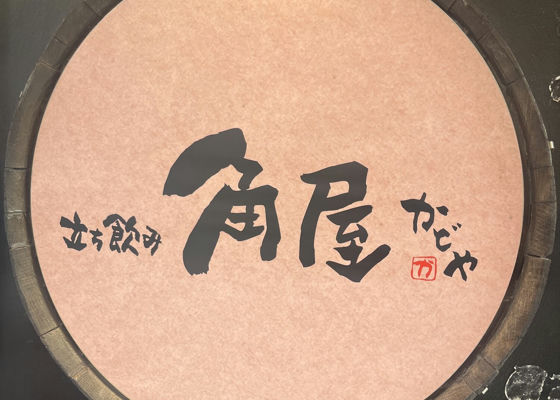 立ち飲み 角屋 かどや
か